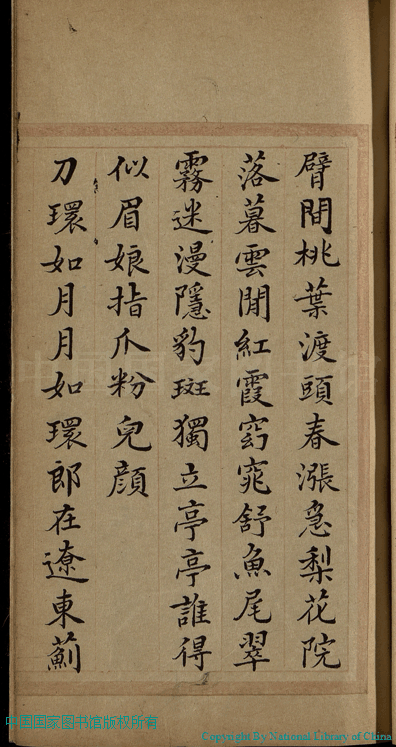 臂間桃葉渡頭春漲急梨花院
落暮雲閒紅霞窈窕舒魚尾翠
霧迷漫隱豹斑獨立亭亭誰得
似眉娘指爪粉兒顔
刀環如月月如環郎在遼東薊
中国国家图书馆版权所有
Copyright By National Library of China